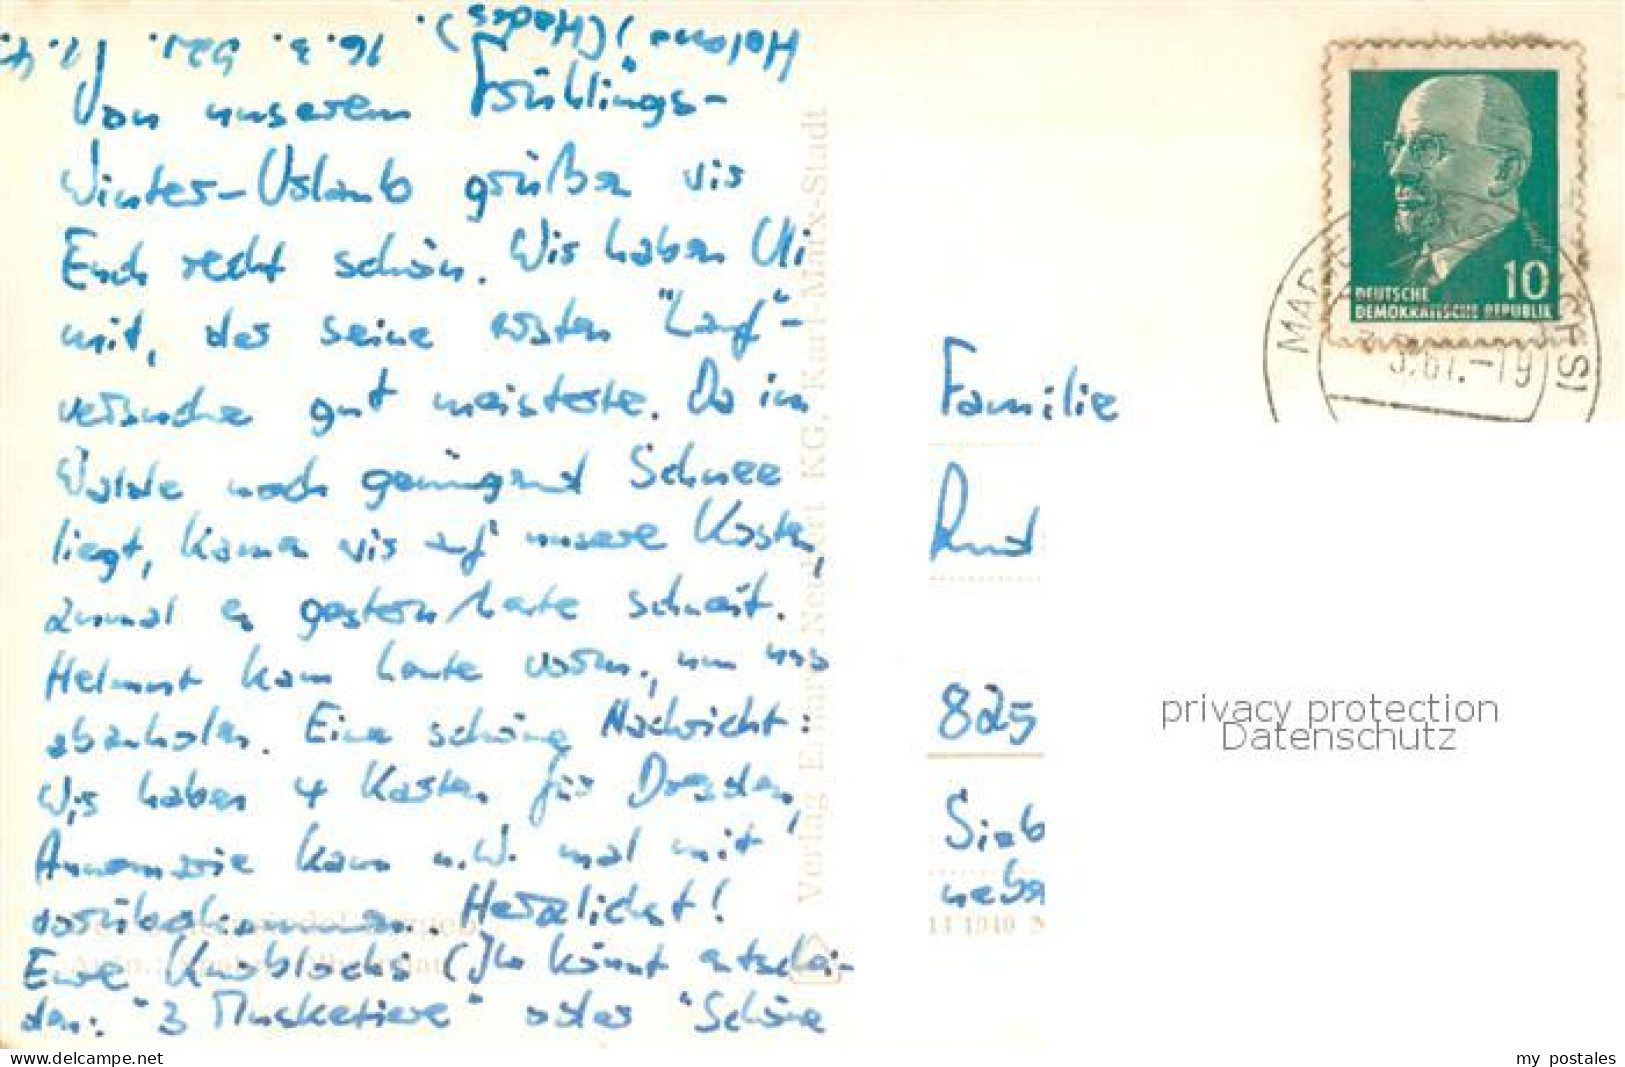 Von unserem Frühlings-
Winter-Urlaub grüßen wir
Euch recht schön. Wir haben Uli
mit, der seine ersten "Lauf"-
versuche gut meisterte. Da im
Walde noch genügend Schnee
liegt, kamen wir auf unsere Kosten,
zumal es gestern/heute schneit.
Helmut kam heute vorm., um uns
abzuholen. Eine schöne Nachricht:
Wir haben 4 Karten für Dresden,
Annemarie kann u.U. mal mit
vorüberkommen. Herzlichst!
Eure Knoblochs (Ihr könnt entschei-
den: "3 Musketiere" oder "Schöne
Helena" (Hades). 16.3.
Verlag Erhard Neubert KG, Karl-Marx-Stadt
10
DEUTSCHE
DEMOKRATISCHE REPUBLIK
3.67.-19
Familie
825
Sieb
neben
14 1940
privacy protection
Datenschutz
www.delcampe.net
my postales